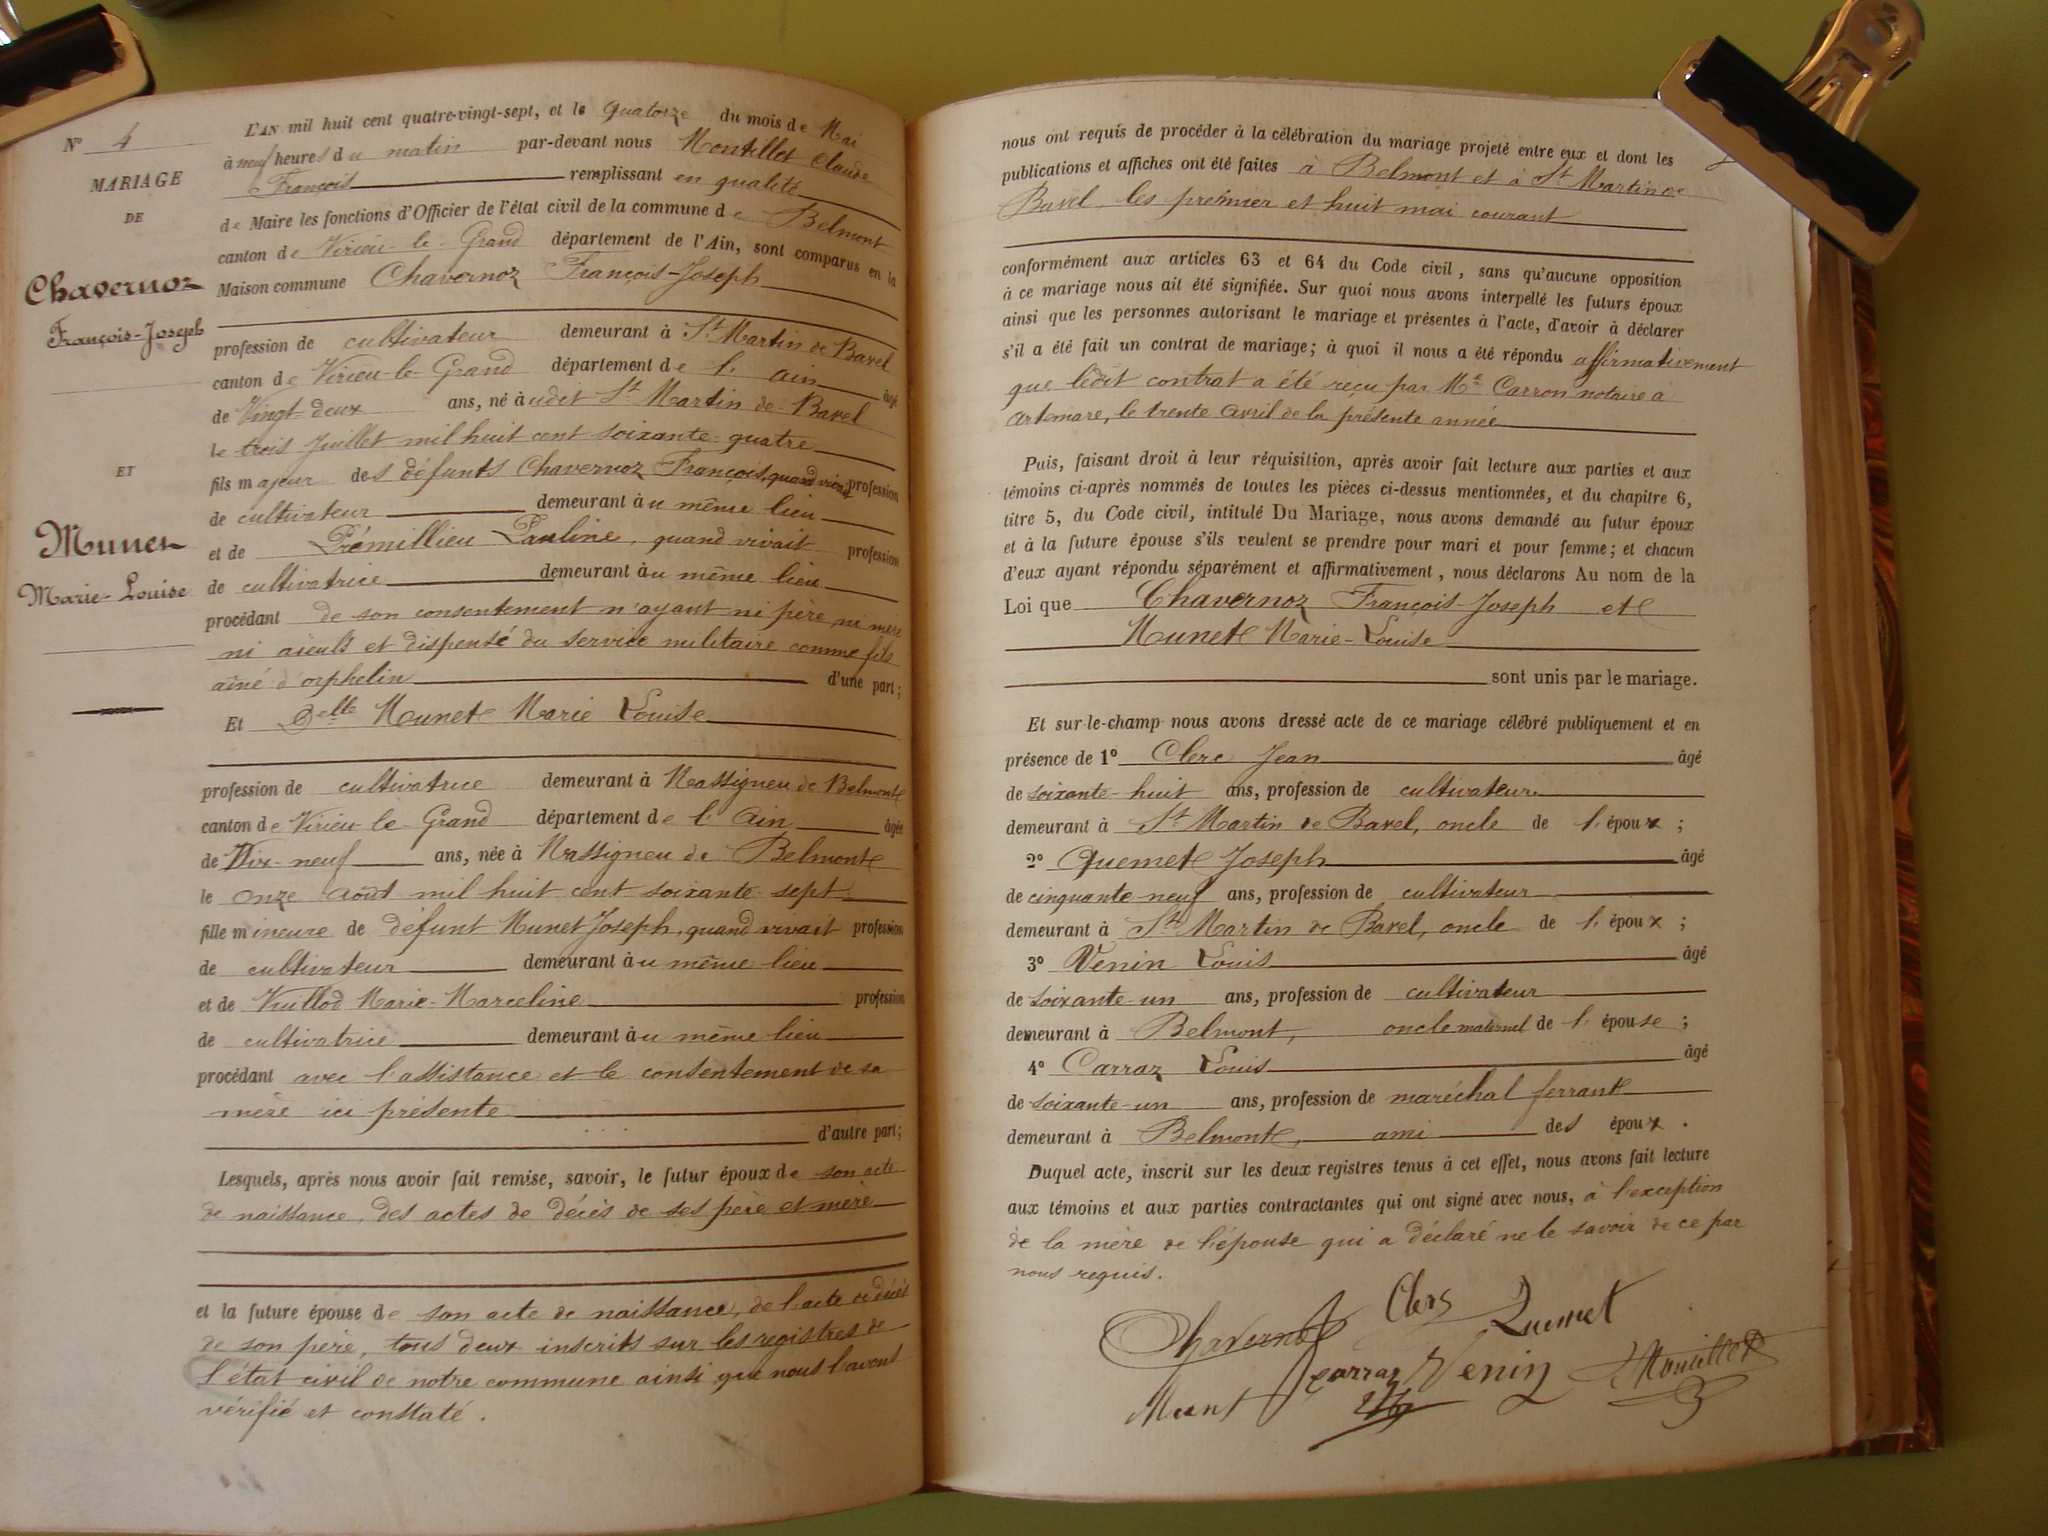 N° 4
MARIAGE
DE
Chavernoz
François-Joseph
ET
Munet
Marie-Louise
L'AN mil huit cent quatre-vingt-sept, et le quatorze du mois de Mai
à neuf heures du matin par-devant nous Montillet Claude
François remplissant en qualité
de Maire les fonctions d'Officier de l'état civil de la commune de Belmont
canton de Virieu-le-Grand département de l'Ain, sont comparus en la
Maison commune Chavernoz François-Joseph
profession de cultivateur demeurant à St Martin de Bavel
canton de Virieu-le-Grand département de l'ain âgé
de Vingt-deux ans, né àudit St Martin de Bavel
le trois Juillet mil huit cent soixante-quatre
fils majeur des défunts Chavernoz François, quand vivait profession
de cultivateur demeurant àu même lieu
et de Prémillieu Pauline, quand vivait profession
de cultivatrice demeurant àu même lieu
procédant de son consentement n'ayant ni père, ni mère
ni aïeuls et dispensé du service militaire comme fils
aîné d'orphelin d'une part;
Et Delle Munet Marie Louise
profession de cultivatrice demeurant à Massigneu de Belmont
canton de Virieu-le-Grand département de l'Ain âgée
de Dix-neuf ans, née à Massigneu de Belmont
le onze Août mil huit cent soixante-sept
fille mineure de défunt Munet Joseph, quand vivait profession
de cultivateur demeurant àu même lieu
et de Vuillod Marie-Marceline profession
de cultivatrice demeurant àu même lieu
procédant avec l'assistance et le consentement de sa
mère ici présente
d'autre part;
Lesquels, après nous avoir fait remise, savoir, le futur époux de son acte
de naissance, des actes de décès de ses père et mère
et la future épouse de son acte de naissance, de l'acte de décès
de son père, tous deux inscrits sur les registres de
l'état civil de notre commune ainsi que nous l'avons
vérifié et constaté.
nous ont requis de procéder à la célébration du mariage projeté entre eux et dont les
publications et affiches ont été faites à Belmont et à St Martin de
Bavel, les premier et huit mai courant
conformément aux articles 63 et 64 du Code civil, sans qu'aucune opposition
à ce mariage nous ait été signifiée. Sur quoi nous avons interpellé les futurs époux
ainsi que les personnes autorisant le mariage et présentes à l'acte, d'avoir à déclarer
s'il a été fait un contrat de mariage; à quoi il nous a été répondu affirmativement
que ledit contrat a été reçu par Me Carron notaire à
Artemare, le trente avril de la présente année
Puis, faisant droit à leur réquisition, après avoir fait lecture aux parties et aux
témoins ci-après nommés de toutes les pièces ci-dessus mentionnées, et du chapitre 6,
titre 5, du Code civil, intitulé Du Mariage, nous avons demandé au futur époux
et à la future épouse s'ils veulent se prendre pour mari et pour femme; et chacun
d'eux ayant répondu séparément et affirmativement, nous déclarons Au nom de la
Loi que Chavernoz François-Joseph et
Munet Marie-Louise
sont unis par le mariage.
Et sur-le-champ nous avons dressé acte de ce mariage célébré publiquement et en
présence de 1° Clerc Jean âgé
de soixante-huit ans, profession de cultivateur
demeurant à St Martin de Bavel, oncle de l'époux;
2° Quemet Joseph âgé
de cinquante neuf ans, profession de cultivateur
demeurant à St Martin de Bavel, oncle de l'époux;
3° Venin Louis âgé
de soixante-un ans, profession de cultivateur
demeurant à Belmont, oncle maternel de l'épouse;
4° Carraz Louis âgé
de soixante-un ans, profession de maréchal ferrant
demeurant à Belmont, ami des époux.
Duquel acte, inscrit sur les deux registres tenus à cet effet, nous avons fait lecture
aux témoins et aux parties contractantes qui ont signé avec nous, à l'exception
de la mère de l'épouse qui a déclaré ne le savoir de ce par
nous requis.
Chavernoz Clerc Quemet
Munet Carraz Venin Montillet